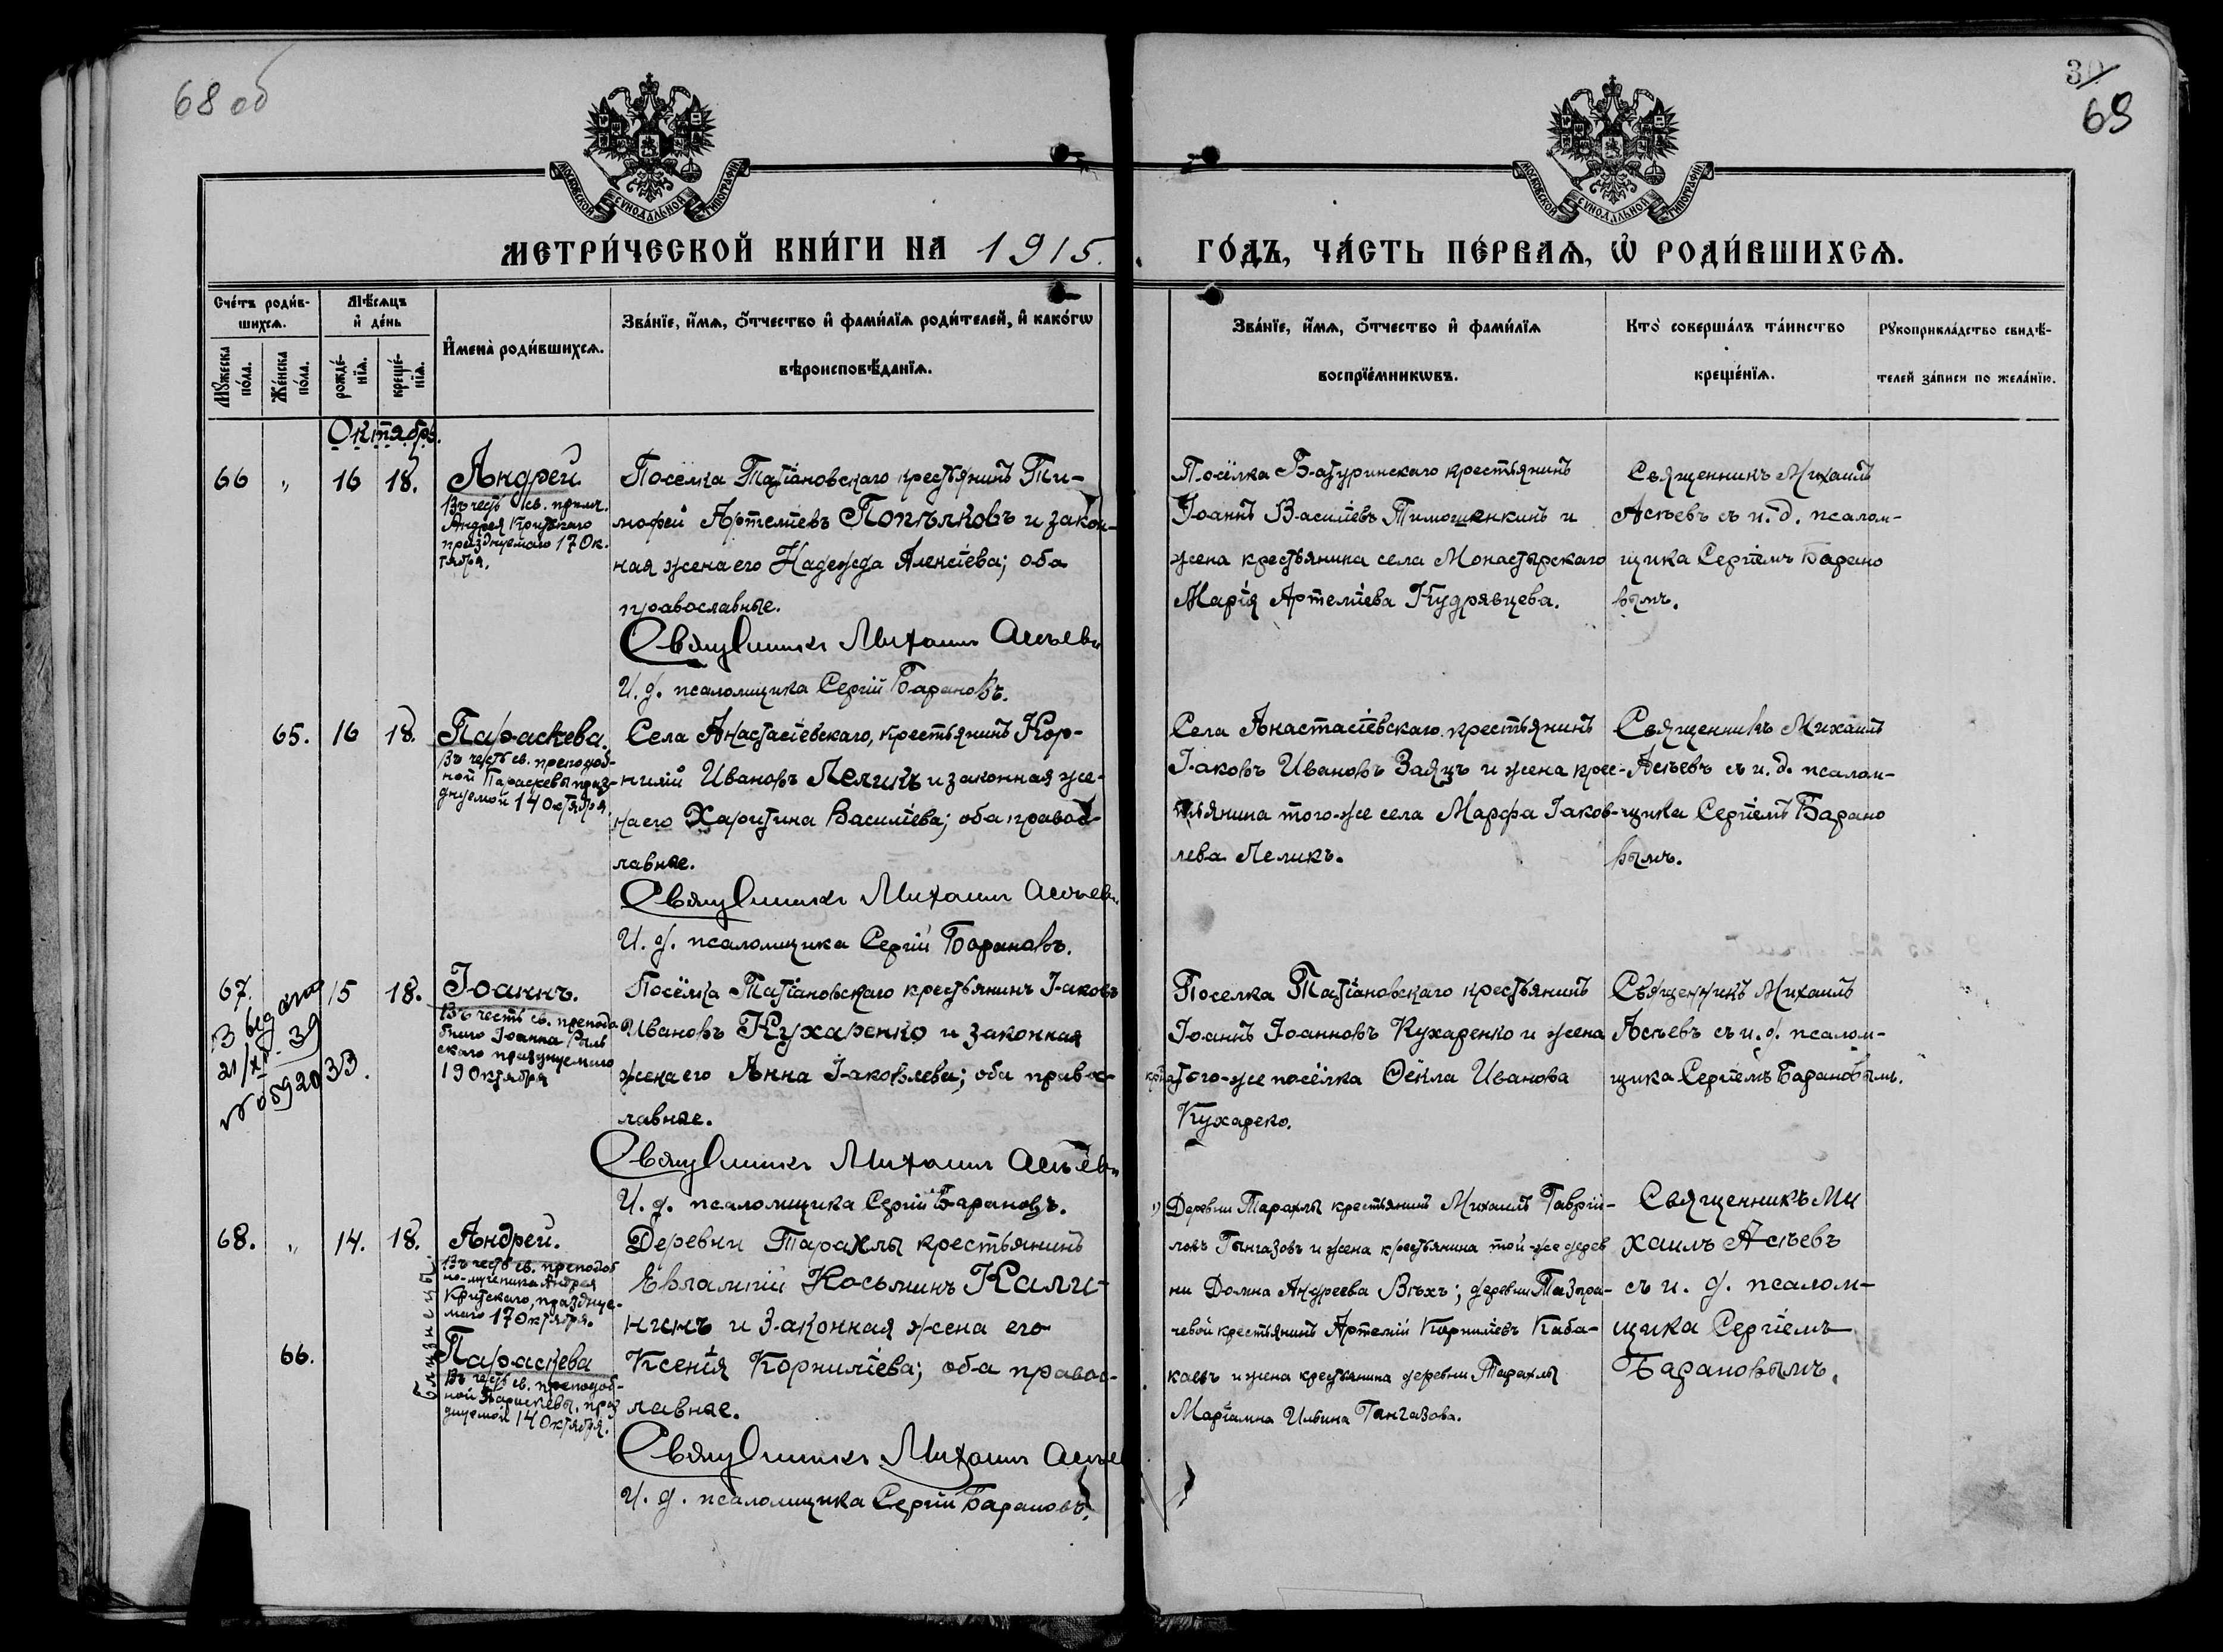 68 об
30
69
МОСКОВСКОЙ СѴНОДАЛЬНОЙ ТИПОГРАФІИ
МОСКОВСКОЙ СѴНОДАЛЬНОЙ ТИПОГРАФІИ
МЕТРИ́ЧЕСКОЙ КНИ́ГИ НА 1915.
ГО́ДЪ, ЧА́СТЬ ПЕ́РВАѦ, Ѽ РОДИ́ВШИХСѦ.
Сче́тъ роди́в-
шихсѧ.
Мꙋ́жеска
по́ла.
Же́нска
по́ла.
Мѣ́сѧцъ
и҆ де́нь
рожде́-
нїѧ.
креще́-
нїѧ.
И҆мена̀ роди́вшихсѧ.
Зва́нїе, и҆́мѧ, ѻ҆́тчество и҆ фами́лїѧ роди́телей, и҆ како́гѡ
вѣроисповѣ́данїѧ.
Зва́нїе, и҆́мѧ, ѻ҆́тчество и҆ фами́лїѧ
воспрїе́мникѡвъ.
Кто̀ соверша́лъ та́инство
креще́нїѧ.
Рꙋкоприкла́дство свидѣ́-
телей за́писи по жела́нїю.
Октябрь.
66 „ 16 18. Андрей.
Въ честь св. прпмч.
Андрея Критскаго
празднуемаго 17 Ок-
тября.
Посёлка Татіановскаго крестьянинъ Ти-
мофей Артеміевъ Попѣлковъ и закон-
ная жена его Надежда Алексіева; оба
православные.
Священникъ Михаилъ Асѣевъ
И. д. псаломщика Сергій Барановъ.
Посёлка Батуринскаго крестьянинъ
Іоаннъ Василіевъ Тимошенкинъ и
жена крестьянина села Монастырскаго
Марія Артеміева Кудрявцева.
Священникъ Михаилъ
Асѣевъ съ и. д. псалом-
щика Сергіемъ Барано
вымъ.
65. 16 18. Параскева.
Въ честь св. преподоб-
ной Параскевы праз-
днуемой 14 Октября.
Села Анастасіевскаго, крестьянинъ Кор-
нилій Ивановъ Лемикъ и законная же-
на его Харитина Василіева; оба правос-
лавные.
Священникъ Михаилъ Асѣевъ
И. д. псаломщика Сергій Барановъ.
Села Анастасіевскаго крестьянинъ
Іаковъ Ивановъ Заяцъ и жена крес-
тьянина того-же села Марфа Іаков-
лева Лемикъ.
Священникъ Михаилъ
Асѣевъ съ и. д. псалом-
щика Сергіемъ Барано
вымъ.
67. 15 18. Іоаннъ.
В ыд
21/XI - 39
№ 0592033.
Въ честь св. преподо
бнаго Іоанна Рыль
скаго празднуемаго
19 Октября
Посёлка Татіановскаго крестьянинъ Іаковъ
Ивановъ Кухаренко и законная
жена его Анна Іаковлева; оба правос-
лавные.
Священникъ Михаилъ Асѣевъ
И. д. псаломщика Сергій Барановъ.
Поселка Татіановскаго крестьянинъ
Іоаннъ Іоанновъ Кухаренко и жена
кр-на того-же посёлка Ѳёкла Иванова
Кухареко.
Священникъ Михаилъ
Асѣевъ съ и. д. псалом-
щика Сергіемъ Барановымъ.
68. „ 14. 18. Андрей.
Въ честь св. преподоб
но-мученика Андрея
Критскаго, праздnуе-
маго 17 Октября.
Близнецы.
66. Параскева
Въ честь св. преподоб-
ной Параскевы, праз
днуемой 14 Октября.
Деревни Тарахлы крестьянинъ
Евлампій Косьминъ Кали-
нинъ и законная жена его
Ксенія Корниліева; оба правос-
лавные.
Священникъ Михаилъ Асѣевъ
И. д. псаломщика Сергій Барановъ.
1) Деревни Тарахлы крестьянинъ Михаилъ Гаврiи-
ловъ Тангазовъ и жена крестьянина той-же дерев
ни Домна Андреева Вѣхъ; деревни Тазыра-
чевой крестьянинъ Артемій Корниліевъ Каба-
каевъ и жена крестьянина деревни Тарахлы
Маріамна Ильина Тангазова.
Священникъ Ми
хаилъ Асѣевъ
съ и. д. псалом-
щика Сергіемъ
Барановымъ.